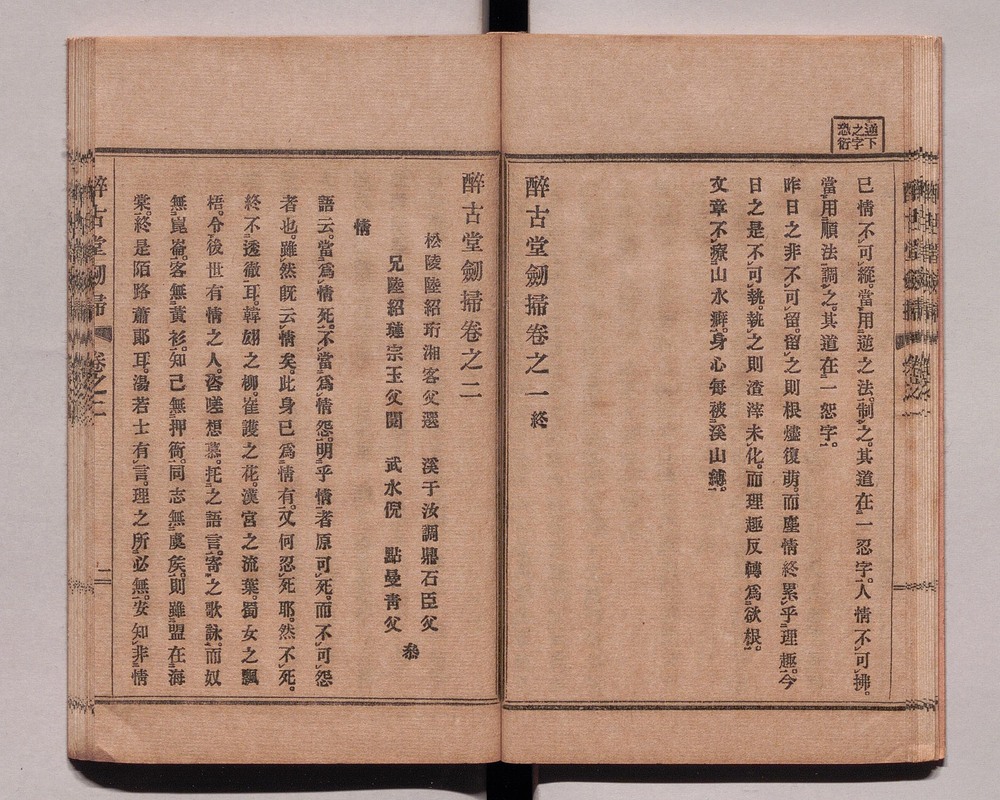 逆下
之字
恐衍
己情不可縱。當用逆之法制之。其道在一忍字。人情不可拂。
當用順法調之。其道在一恕字。
昨日之非不可留。留之則根燼復萌。而塵情終累乎理趣。今
日之是不可執。執之則渣滓未化。而理趣反轉爲欲根。
文章不療山水癖。身心每被溪山縛。
醉古堂劒掃卷之一終
醉古堂劒掃卷之二
松陵陸紹珩湘客父選 溪于汝調鼎石臣父
兄陸紹璉宗玉父閱 武水倪 點曼青父
叅
情
語云。當爲情死。不當爲情怨。明乎情者原可死。而不可怨
者也。雖然既云情矣。此身已爲情有。又何忍死耶。然不死。
終不透徹耳。韓翃之柳。崔護之花。漢宮之流葉。蜀女之飄
梧。令後世有情之人。咨嗟想慕。托之語言。寄之歌詠。而奴
無崑崙。客無黃衫。知己無押衙。同志無虞矦。則雖盟在海
棠。終是陌路蕭郞耳。湯若士有言。理之所必無。安知非情
醉古堂劒掃 卷之二 一